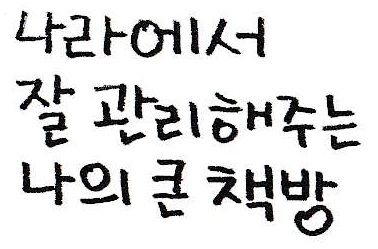 나라에서
잘 관리해주는
나의 큰 책방